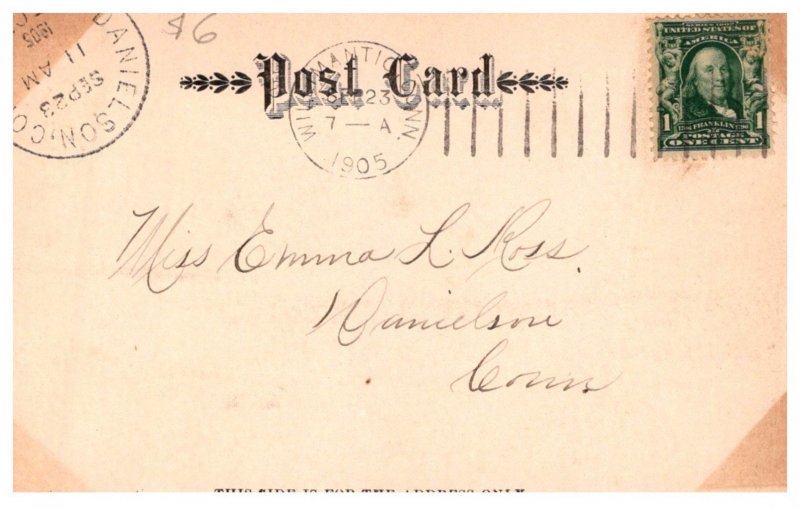 $6
DANIELSON, CO
SEP 23
11 AM
1905
Post Card
WILLIMANTIC CONN.
SEP 23
7 — A
1905
SERIES 1902
UNITED STATES OF
AMERICA
1 FRANKLIN 1
POSTAGE
ONE CENT
Miss Emma L. Ross.
Danielson
Conn
THIS SIDE IS FOR THE ADDRESS ONLY